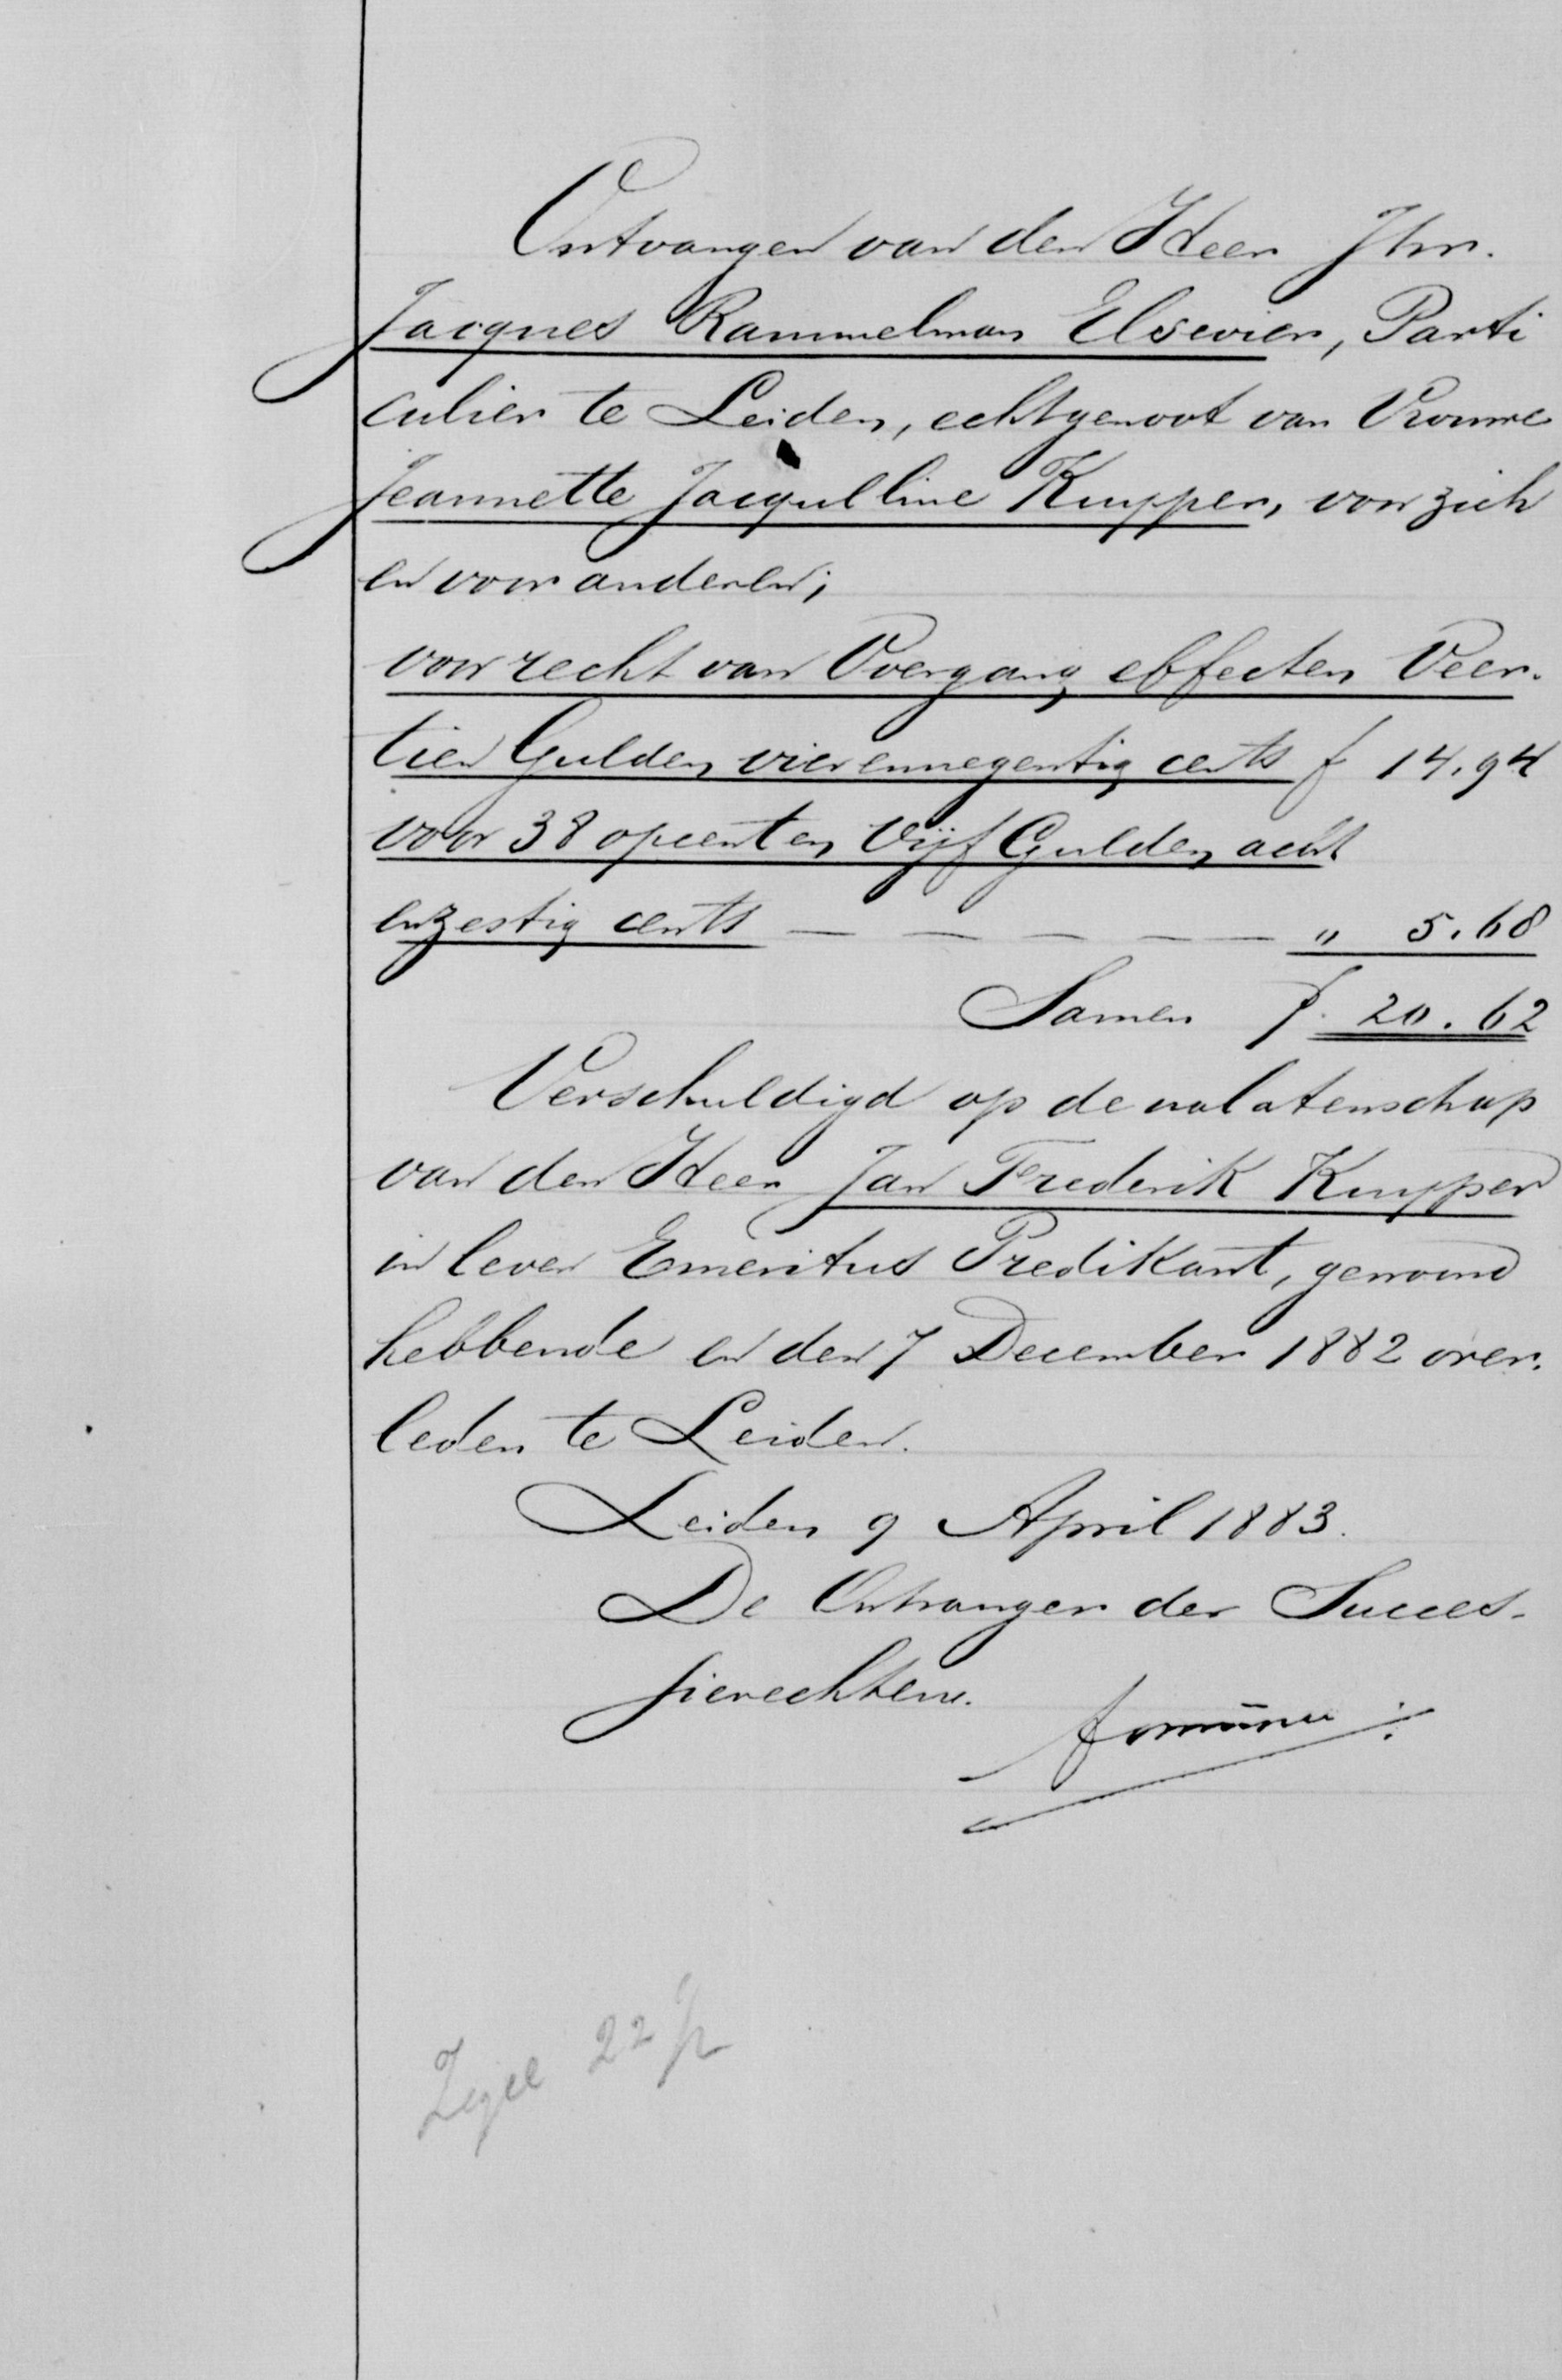 Ontvangen van den Heer Jhr.
Jacques Rammelman Elsevier, Parti
culier te Leiden, echtgenoot van Vrouwe
Jeannette Jacqulline Kuyper, voor zich
en voor anderen;
voor recht van Overgang effecten Veer-
tien Gulden vierennegentig cents f 14.94
voor 38 opcenten Vijf Gulden acht
enzestig cents — — — — — " 5.68
Samen f. 20.62
Verschuldigd op de nalatenschap
van den Heer Jan Frederik Kuyper
in leven Emeritus Predikant, gewoond
hebbende en den 7 December 1882 over-
leden te Leiden.
Leiden 9 April 1883.
De Ontvanger der Succes-
sierechten.
Zegel 22